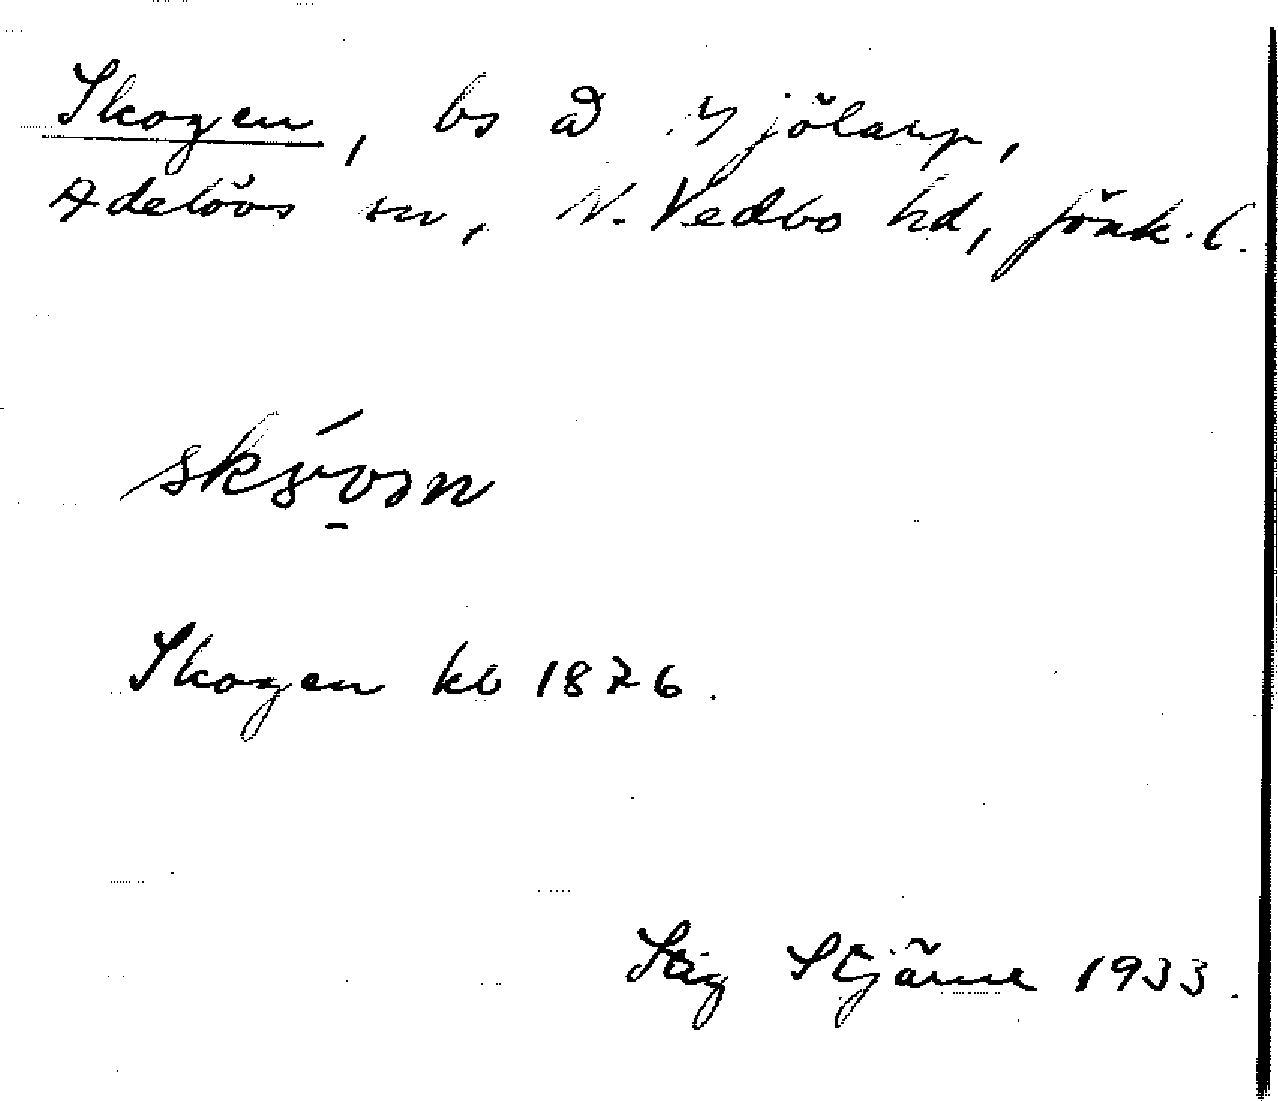 Skogen, bs å Hjälarp,
Adelövs sn, N. Vedbo hd, Jönk. l.
Skogen kb 1876.
Stig Stjärne 1933.